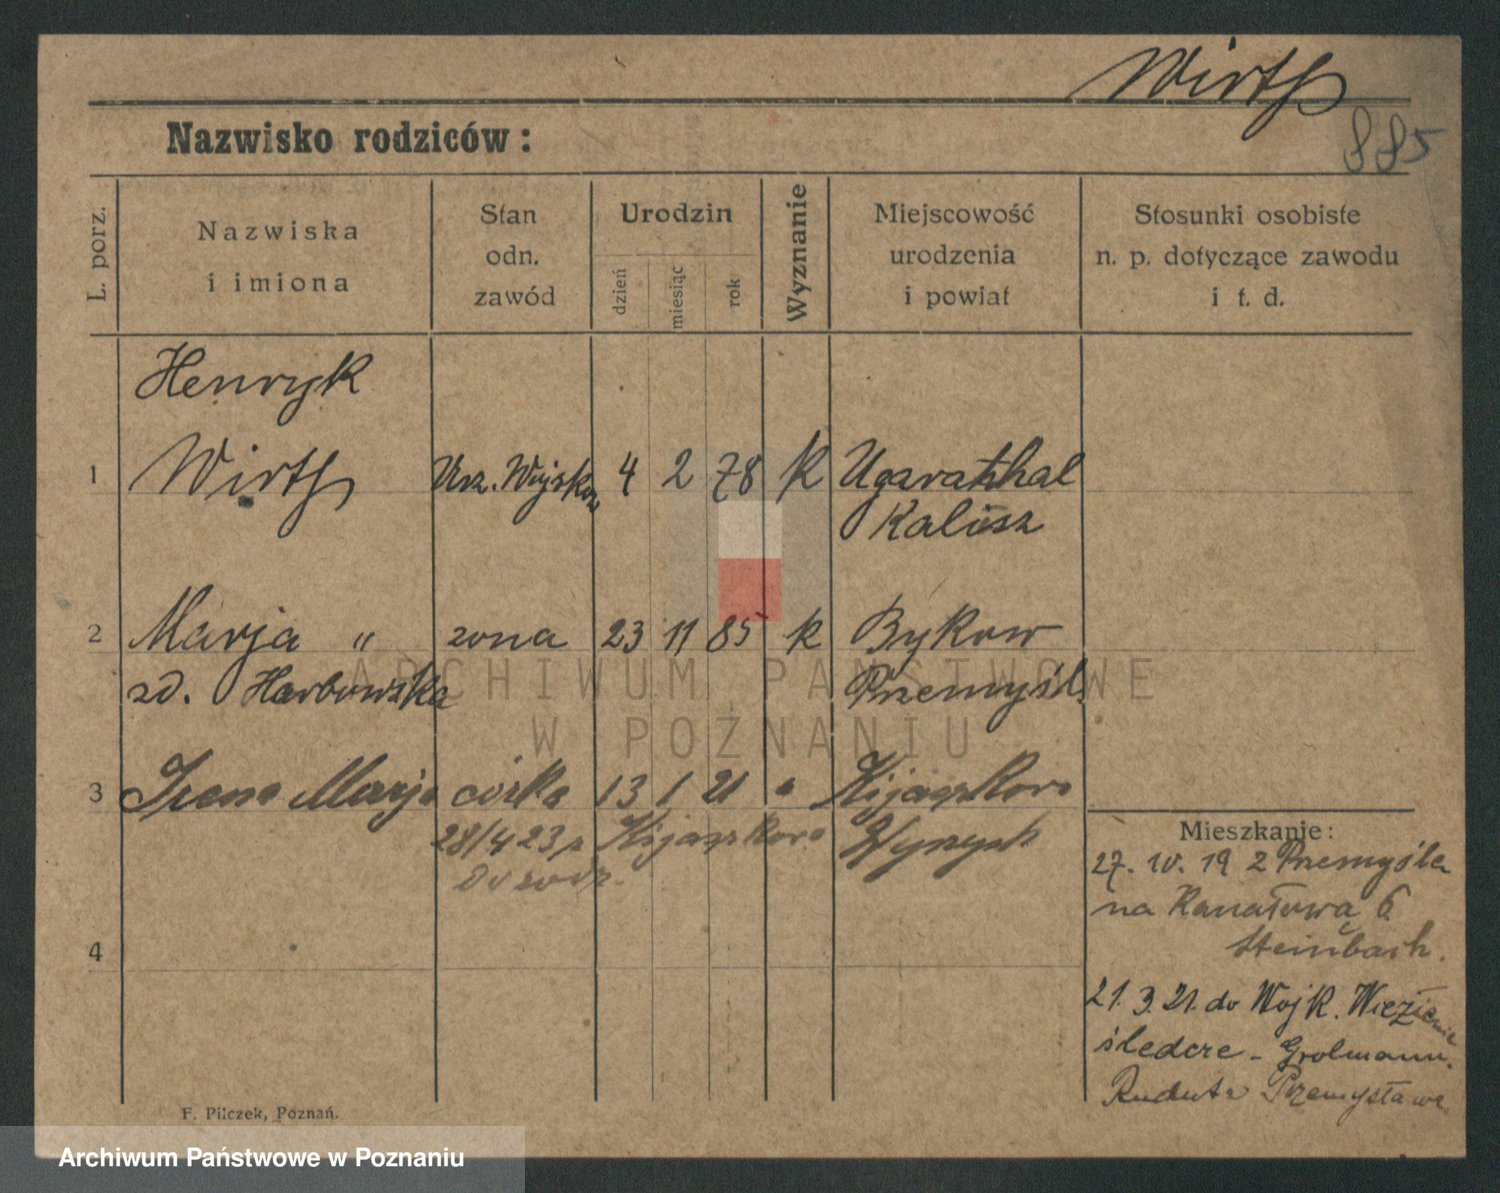 Wirth
885
Nazwisko rodziców:
L. porz.
Nazwiska
i imiona
Stan
odn.
zawód
Urodzin
dzień
miesiąc
rok
Wyznanie
Miejscowość
urodzenia
i powiat
Stosunki osobiste
n. p. dotyczące zawodu
i t. d.
Henryk
1 Wirth Urz. Wojskow 4 2 78 k Ugartsthal
Kalusz
2 Marja " zona 23 11 85 k Bykow
zd. Harbowska Przemyśl
3 Irena Marja córka 13 1 21 "
28/4 23 Wyrzysk
do rodz.
4
Mieszkanie:
27. IV. 19 z Przemyśla
na Kanałową 6
Steinbach.
21. 3. 21. do Wojk. Więzienie
śledcze - Grolmann.
Reduta Przemysława
F. Pilczek, Poznań.
ARCHIWUM PAŃSTWOWE
W POZNANIU
Archiwum Państwowe w Poznaniu